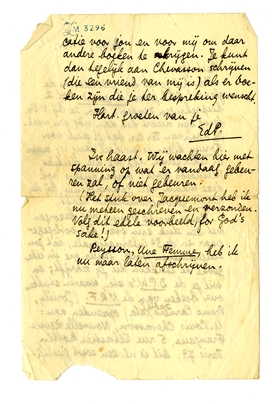 M 3296
catie voor jou en voor mij om daar
andere boeken te krijgen. Je kunt
dan dadelijk aan Chevasson schrijven
(die een vriend van mij is) als er boe-
ken zijn die je ter bespreking wenscht.
Hart. groeten van je
EdP.
In haast. Wij wachten hier met
spanning op wat er vandaag gebeu-
ren zal, of niet gebeuren.
(Het stuk over Jacquemont heb ik
nu meteen geschreven en verzonden.
Volg dit edele voorbeeld, for God's
sake!)
Peysson, Une Femme, heb ik
nu maar laten afschrijven.